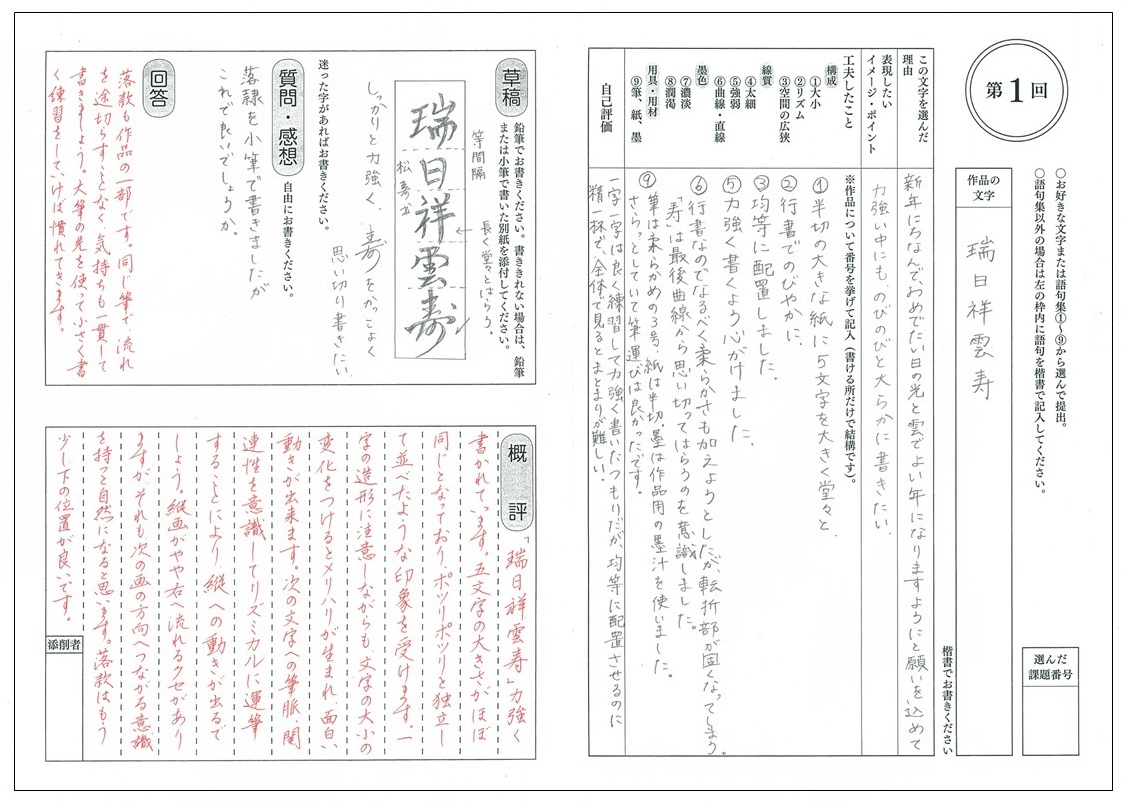 第1回
○お好きな文字または語句集①〜⑨から選んで提出。
○語句集以外の場合は左の枠内に語句を楷書で記入してください。
選んだ
課題番号
作品の
文字
瑞日祥雲寿
楷書でお書きください
この文字を選んだ
理由
新年にちなんで、おめでたい日の光と雲でよい年になりますようにと願いを込めて
表現したい
イメージ・ポイント
力強い中にも、のびのびと大らかに書きたい。
工夫したこと
構成
①大小
②リズム
③空間の広狭
線質
④太細
⑤強弱
⑥曲線・直線
墨色
⑦濃淡
⑧潤渇
用具・用材
⑨筆、紙、墨
※作品について番号を挙げて記入(書ける所だけで結構です)。
①半切の大きな紙に5文字を大きく堂々と
②行書でのびやかに、
③均等に配置しました。
⑤力強く書くよう心がけました。
⑥行書なのでなるべく柔らかさも加えようとしたが、転折部が固くなってしまう。
「寿」は最後曲線から思い切ってはらうのを意識しました。
⑨筆は柔らかめの3号、紙は半切、墨は作品用の墨汁を使いました。
さらっとしていて筆運びは良かったです。
自己評価
一字一字は良く練習して力強く書いたつもりだが、均等に配置させるのに
精一杯で、全体で見るとまとまりが難しい。
草稿
鉛筆でお書きください。書ききれない場合は、鉛筆
または小筆で書いた別紙を添付してください。
長く堂々とはらう。
等間隔
瑞日祥雲寿
松寿書
しっかりと力強く、寿をかっこよく
思い切り書きたい。
迷った字があればお書きください。
質問・感想
自由にお書きください。
落款を小筆で書きましたが
これで良いでしょうか。
回答
落款も作品の一部です。同じ筆で、流れ
を途切らすことなく、気持ちも一貫して
書きましょう。大筆の先を使って小さく書
く練習をしていけば慣れてきます。
概評
「瑞日祥雲寿」力強く
書かれています。五文字の大きさがほぼ
同じとなっており、ポツリポツリと独立し
て並べたような印象を受けます。一
字の造形に注意しながらも、文字の大小の
変化をつけるとメリハリが生まれ、面白い
動きが出来ます。次の文字への筆脈、関
連性を意識してリズミカルに運筆
することにより、縦への動きが出るで
しょう。縦画がやや右へ流れるクセがあり
ますが、それも次の画の方向へつながる意識
を持つと自然になると思います。落款はもう
少し下の位置が良いです。
添削者